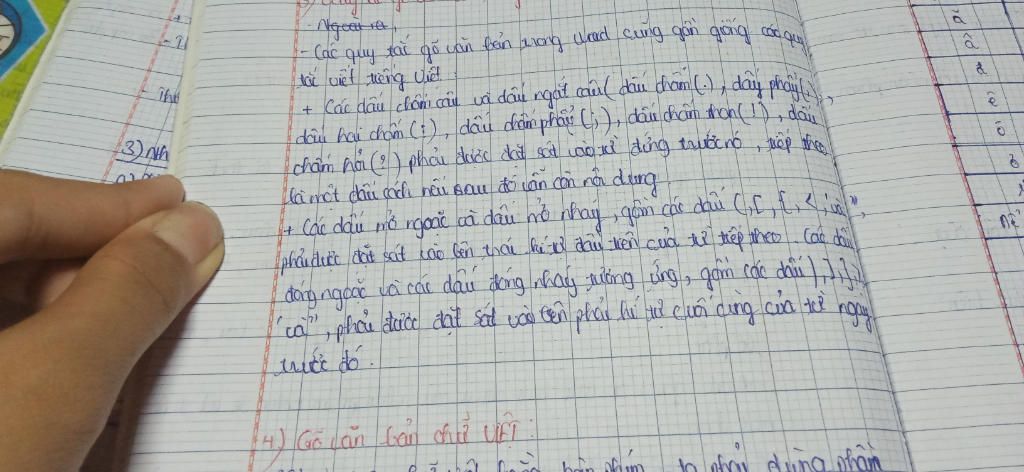 - Ngoài ra
- Các quy tắc gõ văn bản trong Word cũng gần giống các quy
tắc viết tiếng Việt.
+ Các dấu chấm câu và dấu ngắt câu (dấu chấm (.), dấy phẩy (,),
dấu hai chấm (:), dấu chấm phẩy (;), dấu chấm than (!), dấu
3) Nh
chấm hỏi (?) phải được đặt sát vào từ đứng trước nó, tiếp theo
là một dấu cách nếu sau đó vẫn còn nội dung
+ Các dấu mở ngoặc và dấu mở nháy, gồm các dấu (, [, {, <,
phải được đặt sát vào bên trái kí tự đầu tiên của từ tiếp theo. Các dấu
đóng ngoặc và các dấu đóng nháy tương ứng, gồm các dấu ), ], },
phải được đặt sát vào bên phải kí tự cuối cùng của từ ngay
trước đó.
4) Gõ văn bản chữ VIỆT:
phải dùng phần
ă
â
ê